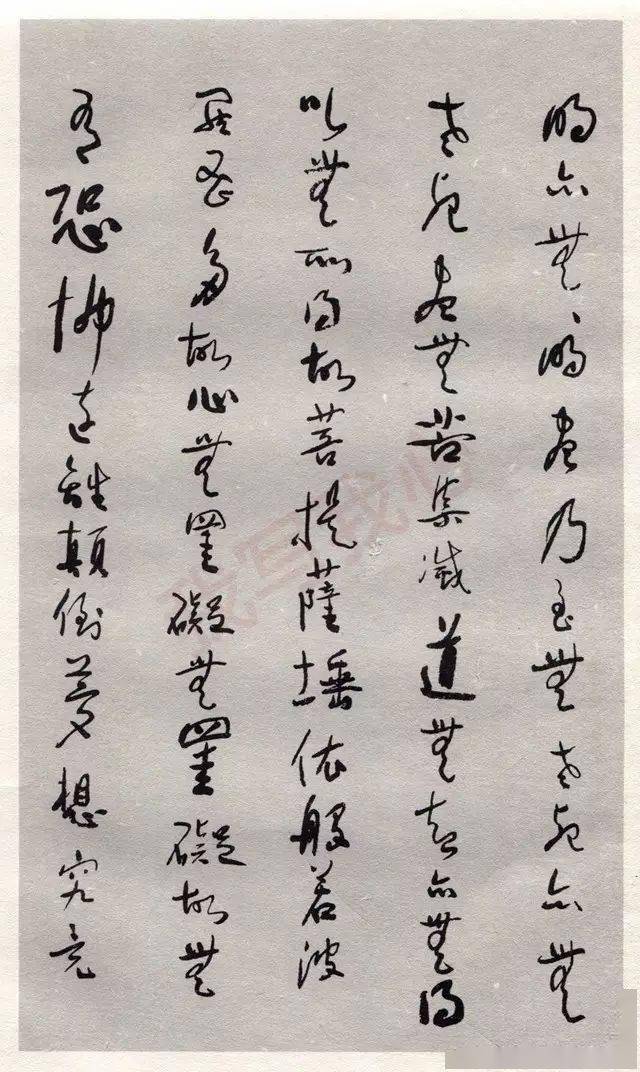 明亦無〻明盡乃至無老死亦無
老死盡無苦集滅道無智亦無得
以無所得故菩提薩埵依般若波
羅蜜多故心無罣礙無罣礙故無
有恐怖遠離顛倒夢想究竟
我写我心